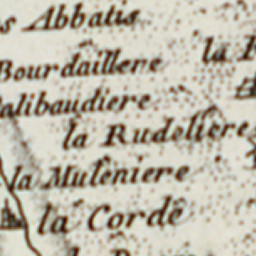 s Abbatis
Bourdaillere
la
alibaudiere
la Rudeliere
la Muleniere
la Corde